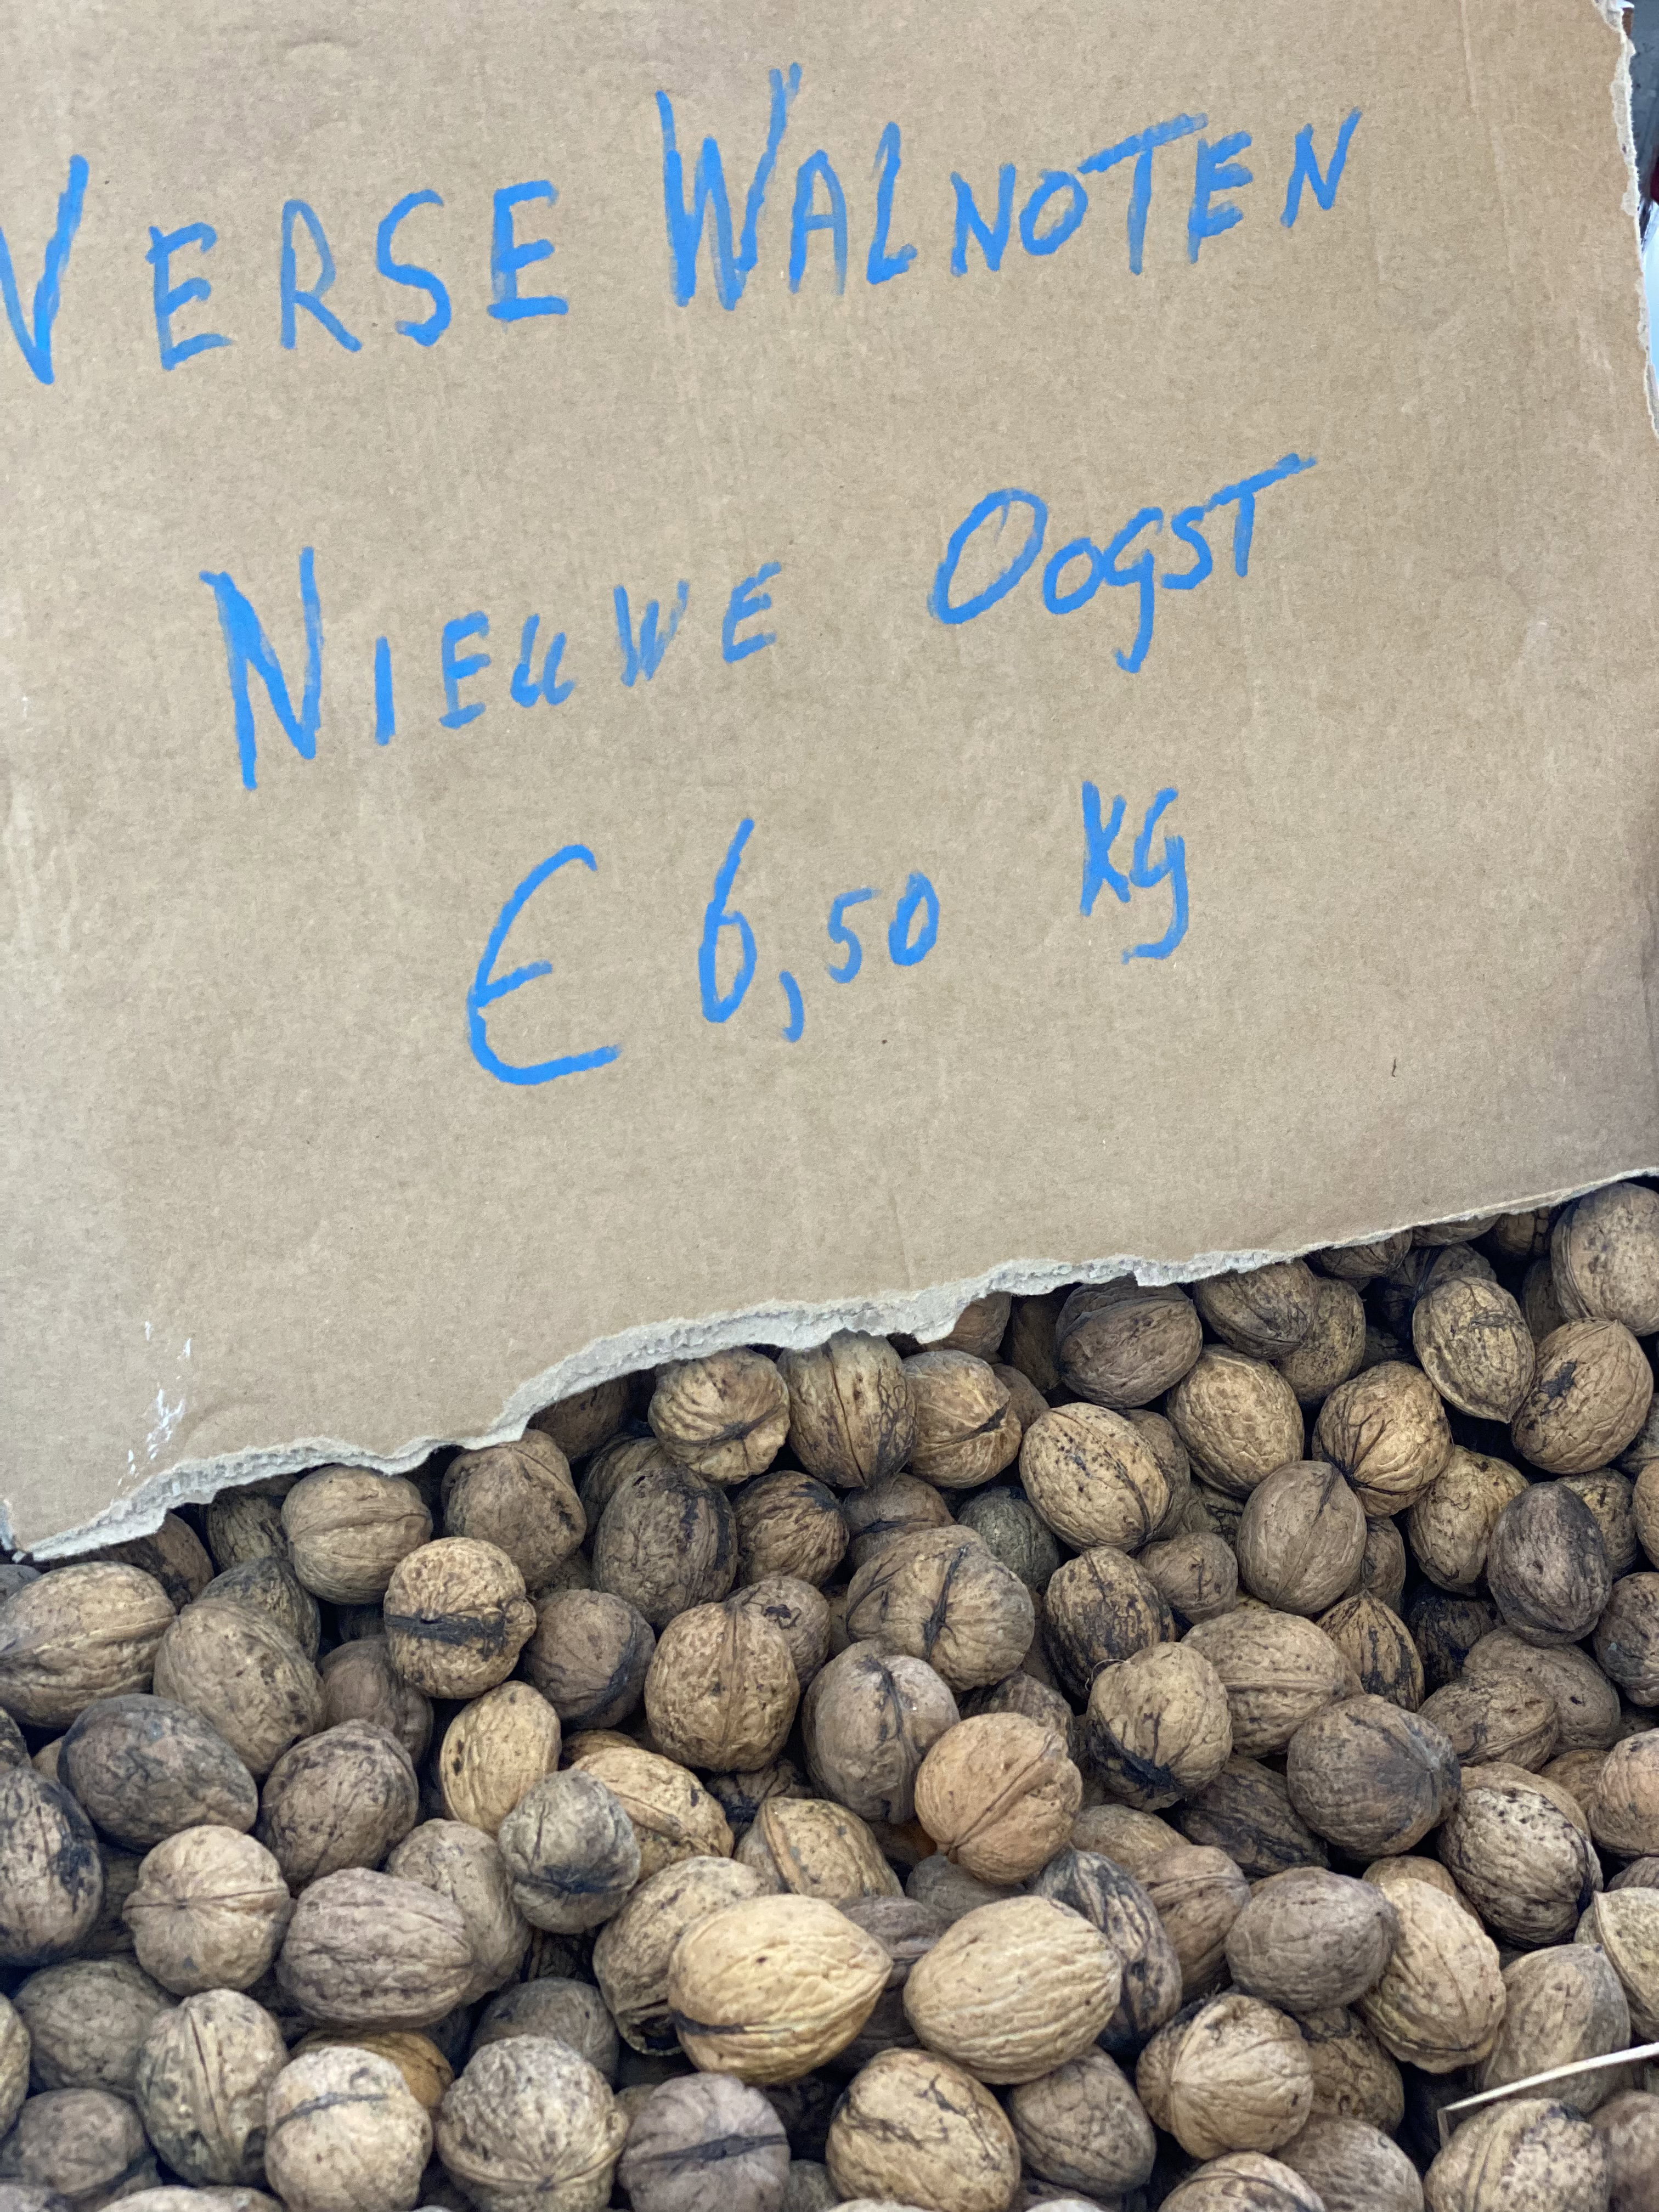 VERSE WALNOTEN
NIEUWE OOGST
€ 6,50 KG